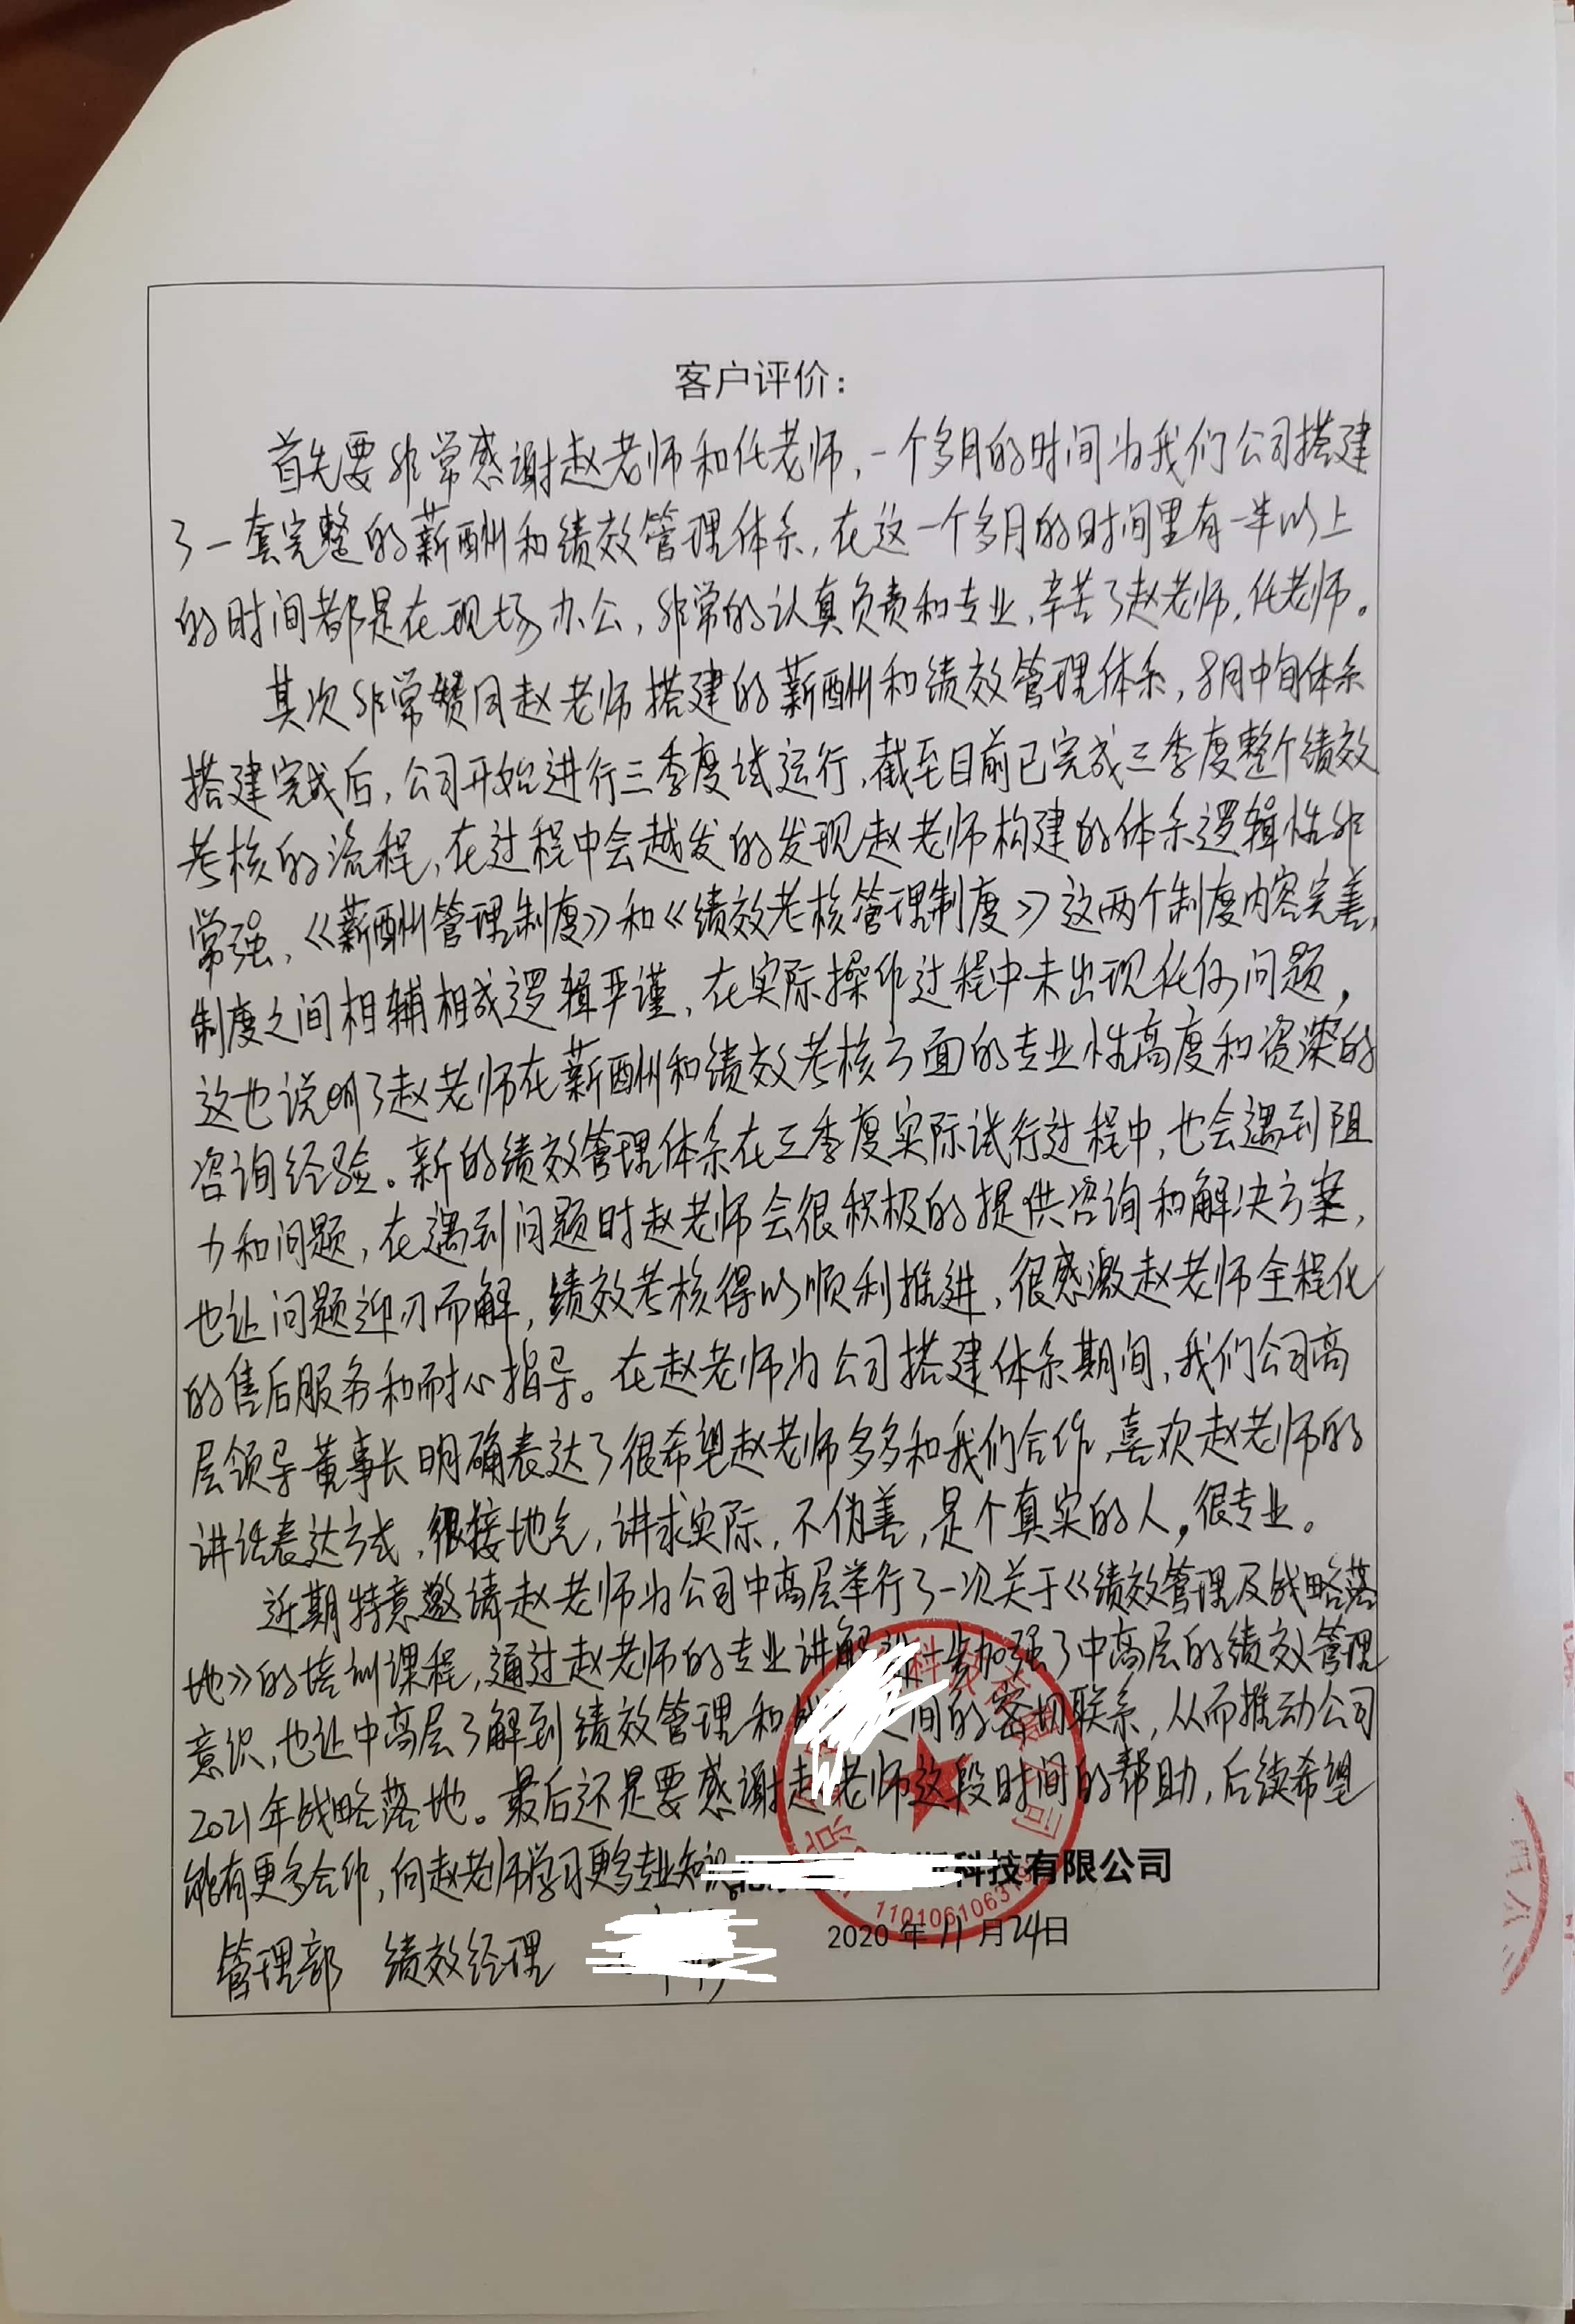 客户评价：
首先要非常感谢赵老师和任老师，一个多月的时间为我们公司搭建
了一套完整的薪酬和绩效管理体系，在这一个多月的时间里有一半以上
的时间都是在现场办公，非常的认真负责和专业，辛苦了赵老师，任老师。
其次非常赞同赵老师搭建的薪酬和绩效管理体系，8月中旬体系
搭建完成后，公司开始进行三季度试运行，截至目前已完成三季度整个绩效
考核的流程，在过程中会越发的发现赵老师构建的体系逻辑性非
常强，《薪酬管理制度》和《绩效考核管理制度》这两个制度内容完善，
制度之间相辅相成逻辑严谨，在实际操作过程中未出现任何问题，
这也说明了赵老师在薪酬和绩效考核方面的专业性高度和资深的
咨询经验。新的绩效管理体系在三季度实际试行过程中，也会遇到阻
力和问题，在遇到问题时赵老师会很积极的提供咨询和解决方案，
也让问题迎刃而解，绩效考核得以顺利推进，很感激赵老师全程化
的售后服务和耐心指导。在赵老师为公司搭建体系期间，我们公司高
层领导董事长明确表达了很希望赵老师多多和我们合作，喜欢赵老师的
讲话表达方式，很接地气，讲求实际，不伪善，是个真实的人，很专业。
近期特意邀请赵老师为公司中高层举行了一次关于《绩效管理及战略落
地》的培训课程，通过赵老师的专业讲解进一步加强了中高层的绩效管理
意识，也让中高层了解到绩效管理和战之间的密切联系，从而推动公司
2021年战略落地。最后还是要感谢赵老师这段时间的帮助，后续希望
能有更多合作，向赵老师学习更多专业知识
科技有限公司
2020年11月24日
管理部 绩效经理